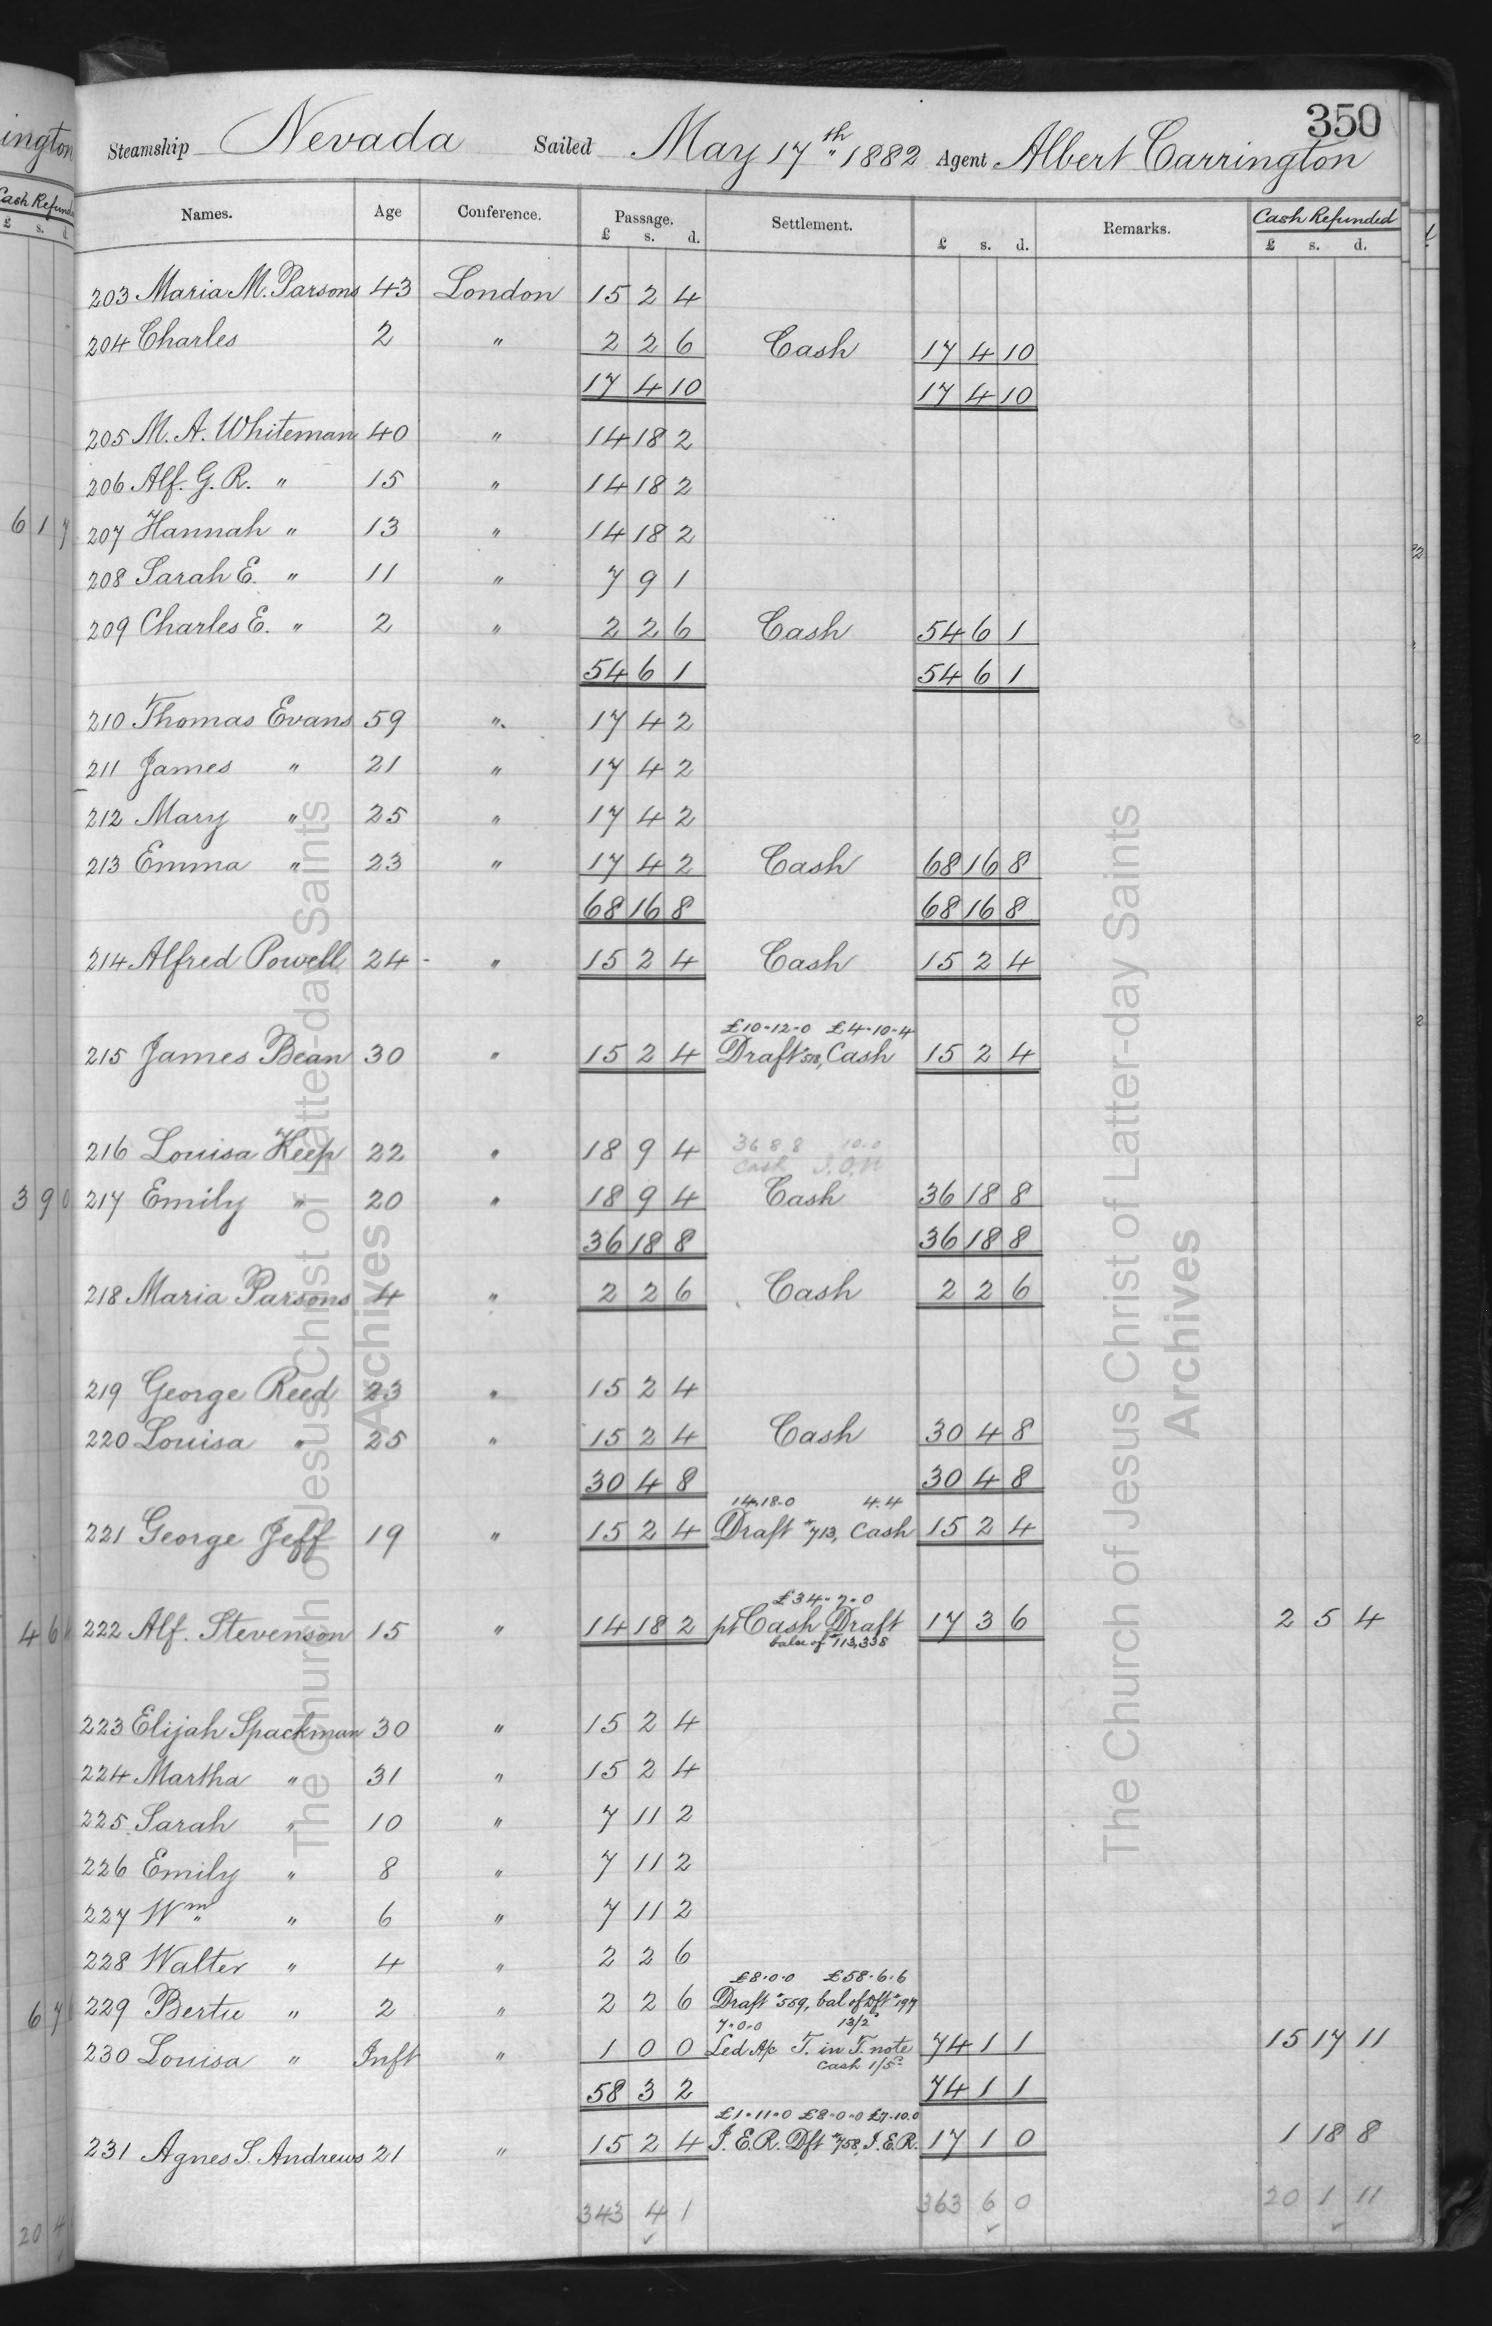 350
Steamship Nevada Sailed May 17th 1882 Agent Albert Carrington
Names. Age Conference. Passage. Settlement. Remarks. Cash Refunded
£ s. d. £ s. d. £ s. d.
203 Maria M. Parsons 43 London 15 2 4
204 Charles 2 " 2 2 6 Cash 17 4 10
17 4 10 17 4 10
205 M. A. Whiteman 40 " 14 18 2
206 Alf. G. R. " 15 " 14 18 2
207 Hannah " 13 " 14 18 2
208 Sarah E. " 11 " 7 9 1
209 Charles E. " 2 " 2 2 6 Cash 54 6 1
54 6 1 54 6 1
210 Thomas Evans 59 " 17 4 2
211 James " 21 " 17 4 2
212 Mary " 25 " 17 4 2
213 Emma " 23 " 17 4 2 Cash 68 16 8
68 16 8 68 16 8
214 Alfred Powell 24 " 15 2 4 Cash 15 2 4
£10-12-0 £4-10-4
215 James Bean 30 " 15 2 4 Draft Cash 15 2 4
36 8 8 10-0
216 Louisa Keep 22 " 18 9 4 Cash
217 Emily " 20 " 18 9 4 Cash 36 18 8
36 18 8 36 18 8
218 Maria Parsons 4 " 2 2 6 Cash 2 2 6
219 George Reed 23 " 15 2 4
220 Louisa " 25 " 15 2 4 Cash 30 4 8
30 4 8 30 4 8
14.18.0 4.4
221 George Jeff 19 " 15 2 4 Draft #713, Cash 15 2 4
£34-7-0
222 Alf. Stevenson 15 " 14 18 2 pt Cash Draft 17 3 6 2 5 4
balce of #113,338
223 Elijah Spackman 30 " 15 2 4
224 Martha " 31 " 15 2 4
225 Sarah " 10 " 7 11 2
226 Emily " 8 " 7 11 2
227 Wm " 6 " 7 11 2
228 Walter " 4 " 2 2 6
£8-0-0 £58-6-6
229 Bertie " 2 " 2 2 6 Draft #559, bal of Dft #197
7-0-0 13/2
230 Louisa " Inft " 1 0 0 Led A/c T. in T. note 74 1 1 15 17 11
Cash 1/5
58 3 2 74 1 1
£1-11-0 £8-0-0 £7-10.0
231 Agnes S. Andrews 21 " 15 2 4 I.E.R. Dft #758, I.E.R. 17 1 0 1 18 8
343 4 1 363 6 0 20 1 11
ington
Cash Refund
£ s. d.
6 1 7
3 9 0
4 6
6 7
20 4
The Church of Jesus Christ of Latter-day Saints
Archives
The Church of Jesus Christ of Latter-day Saints
Archives